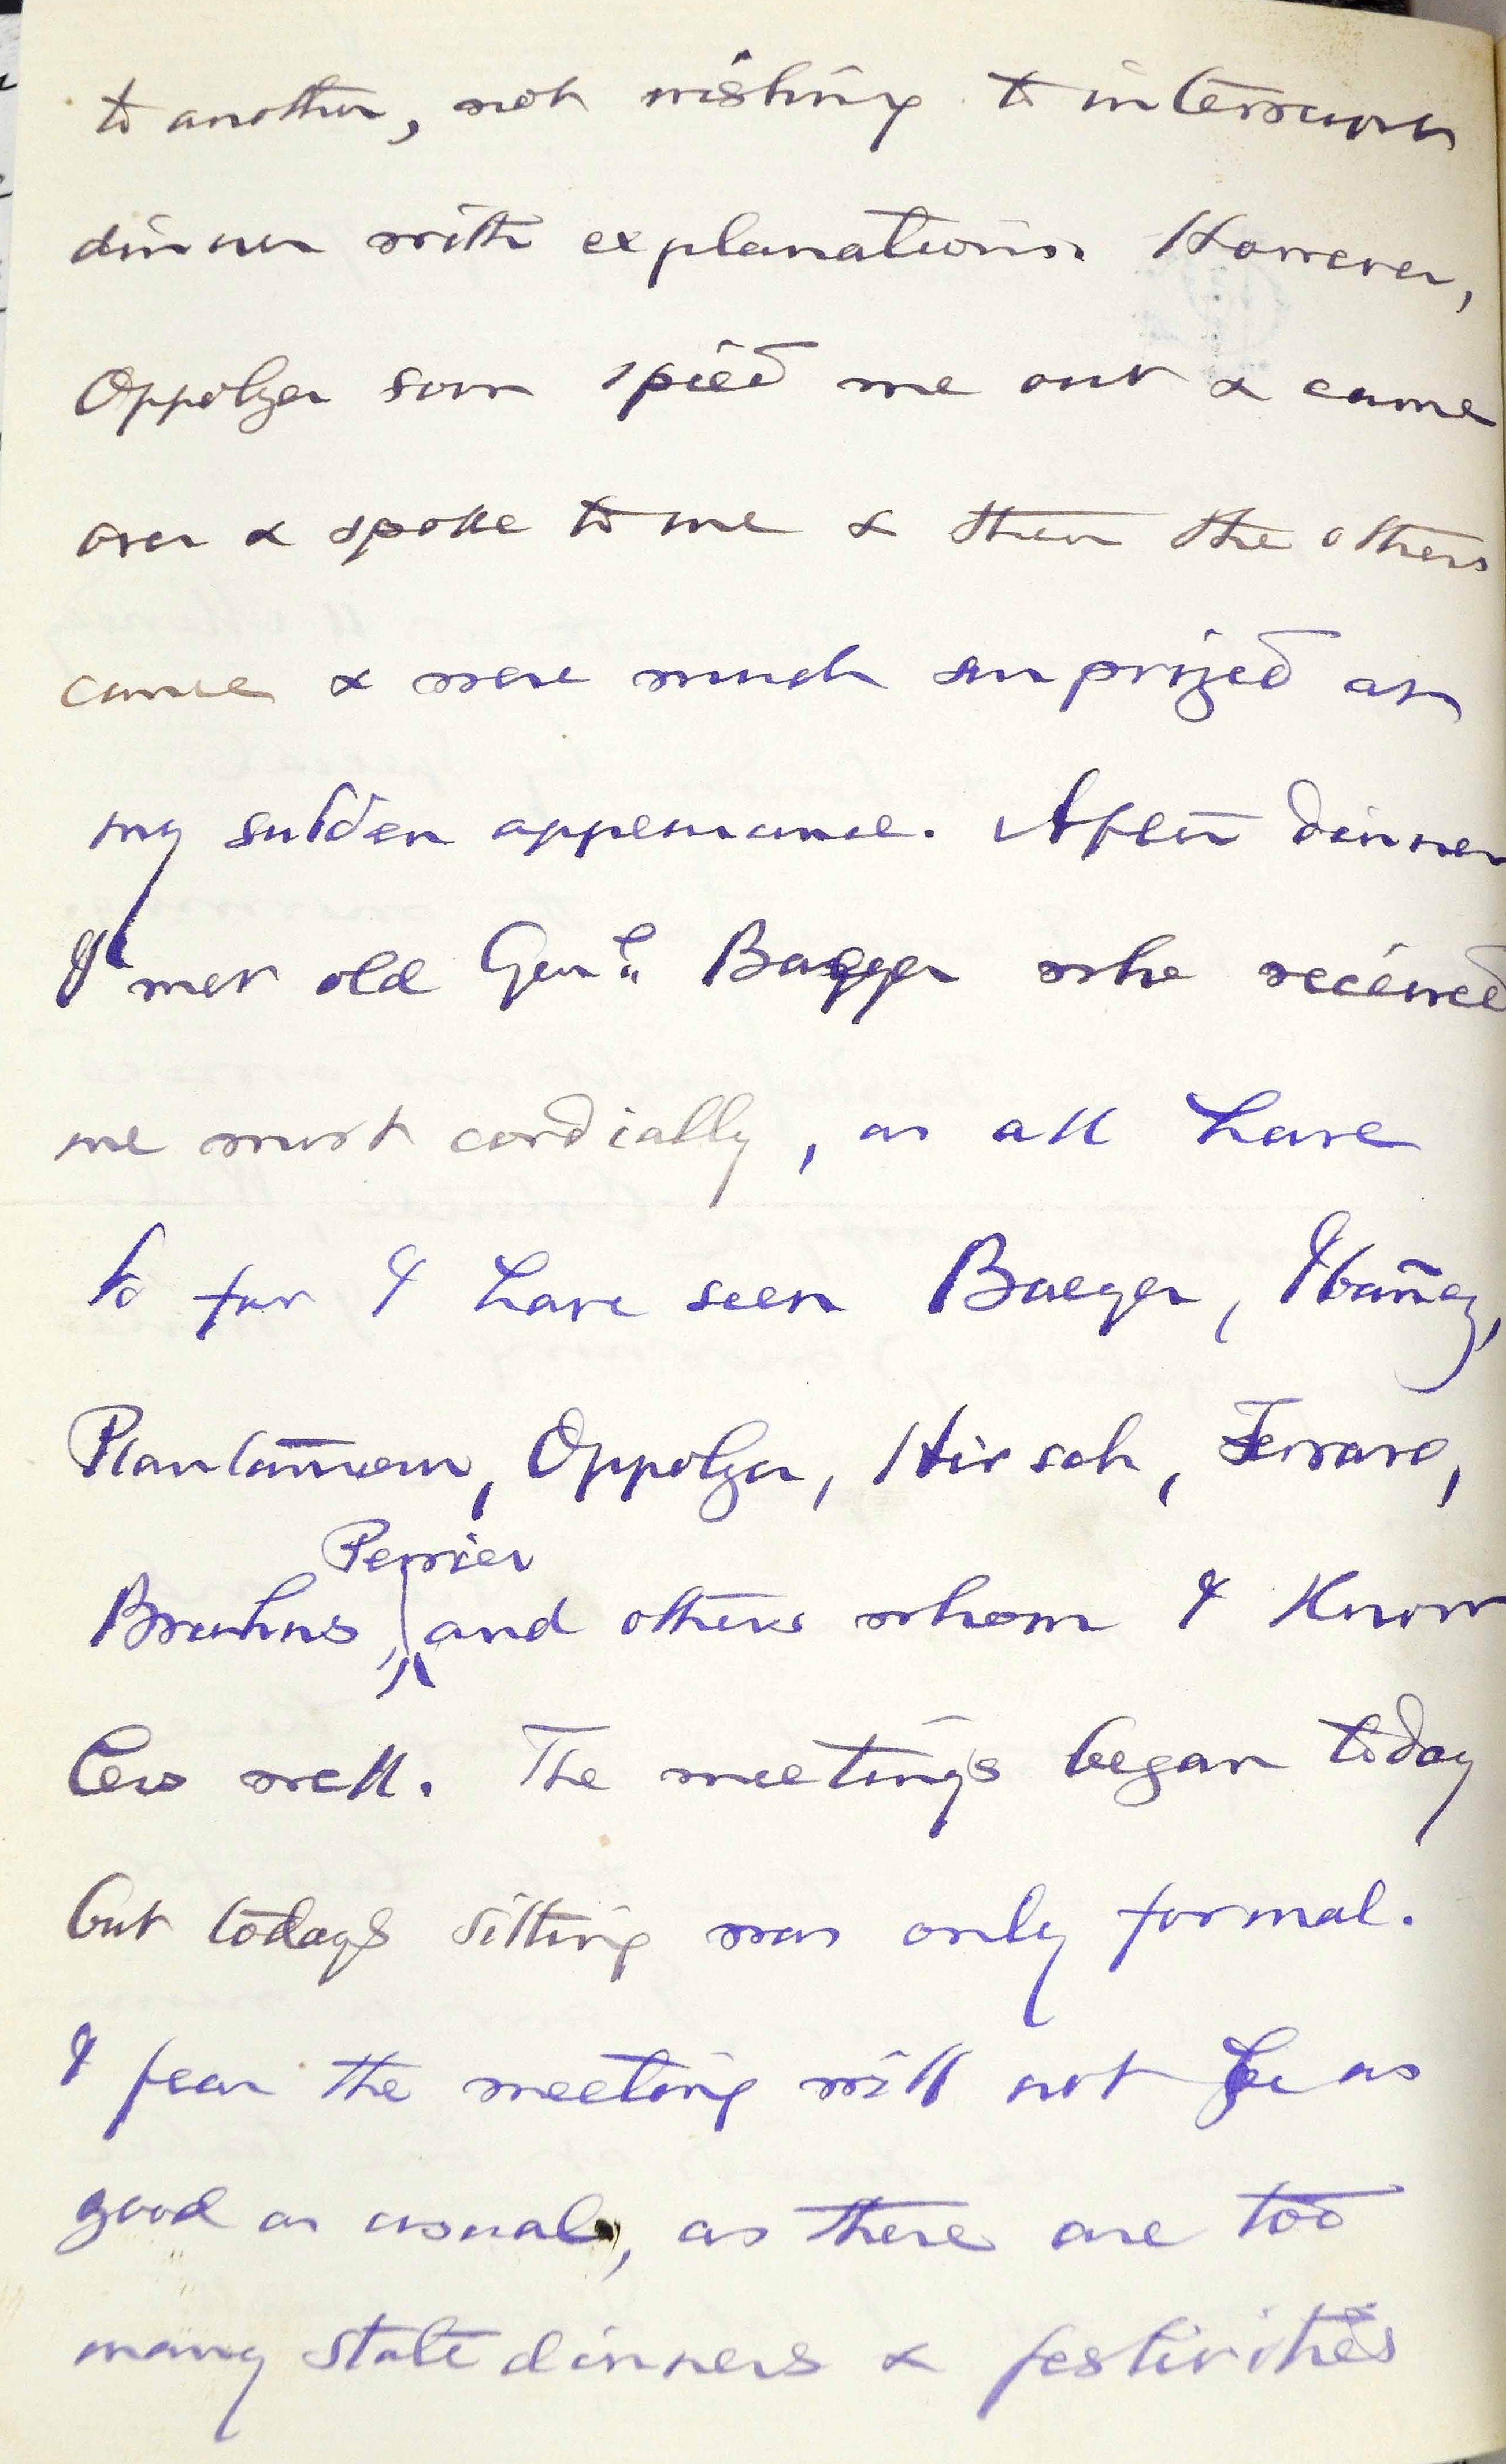 to another, not wishing to interrupt
dinner with explanations. However,
Oppolzer soon spied me out & came
over & spoke to me & then the others
came & were much surprized at
my sudden appearance. After dinner
I met old Genl. Baeyer who received
me most cordially, as all have
so far I have seen Baeyer, Ibañez,
Plantamour, Oppolzer, Hirsch, Ferrero,
Perrier
Bruhns, and others whom I know
less well. The meetings began today
but todays sitting was only formal.
I fear the meeting will not be as
good as usual, as there are too
many state dinners & festivities